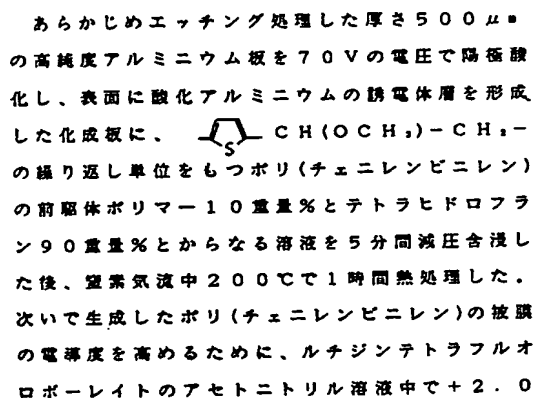 あらかじめエッチング処理した厚さ500μm
の高純度アルミニウム板を70Vの電圧で陽極酸
化し、表面に酸化アルミニウムの誘電体層を形成
した化成板に、 S CH(OCH₃)-CH₂-
の繰り返し単位をもつポリ(チェニレンビニレン)
の前駆体ポリマー10重量%とテトラヒドロフラ
ン90重量%とからなる溶液を5分間減圧含浸し
た後、窒素気流中200℃で1時間熱処理した。
次いで生成したポリ(チェニレンビニレン)の被膜
の電導度を高めるために、ルチジンテトラフルオ
ロボーレイトのアセトニトリル溶液中で+2.0